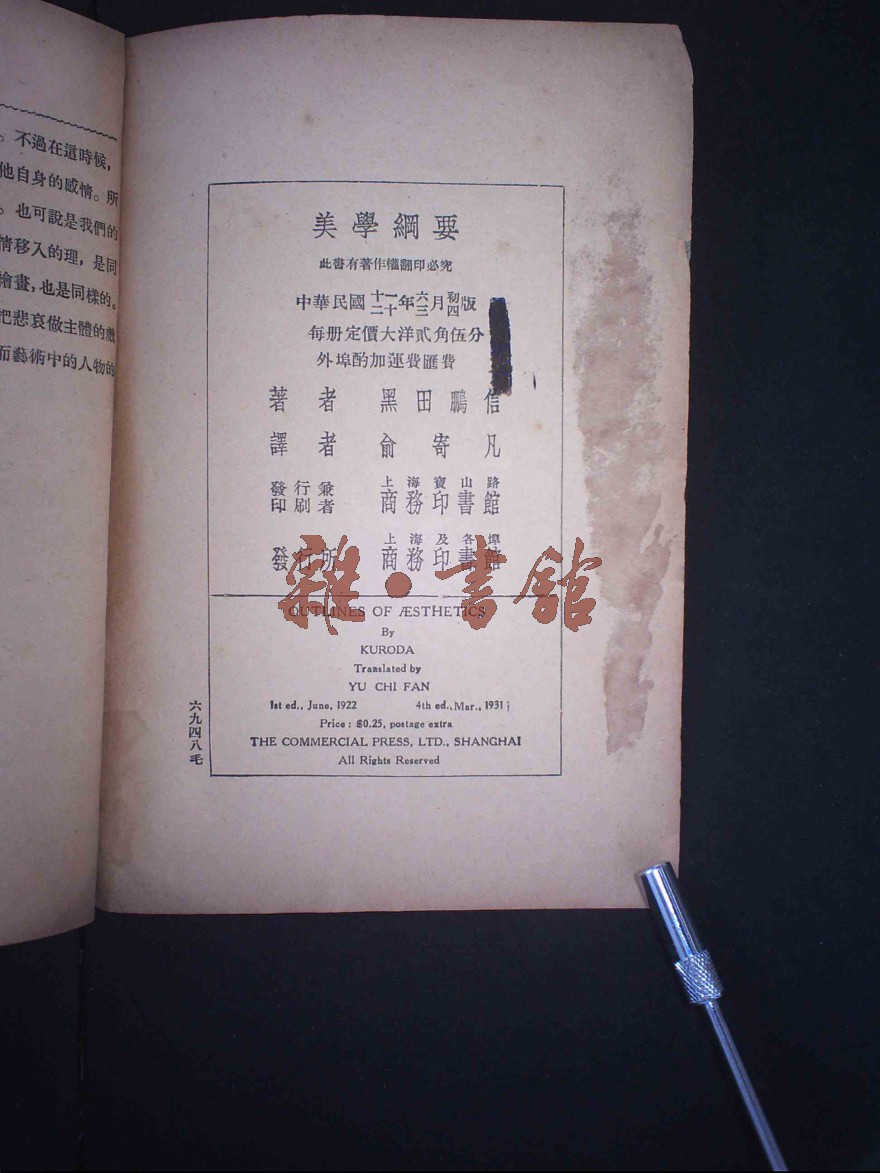 。不過在這時候，
他自身的感情。所
。也可說是我們的
情移入的理，是同
繪畫，也是同樣的。
把悲哀做主體的戲
而藝術中的人物的
美學綱要
此書有著作權翻印必究
中華民國十一年六月初版
二十年三月四版
每册定價大洋貳角伍分
外埠酌加運費匯費
著者 黑田鵬信
譯者 俞寄凡
發行兼印刷者 上海寶山路
商務印書館
發行所 上海及各埠
商務印書館
雜·書館
OUTLINES OF ÆSTHETICS
By
KURODA
Translated by
YU CHI FAN
1st ed., June, 1922 4th ed., Mar., 1931
Price: $0.25, postage extra
THE COMMERCIAL PRESS, LTD., SHANGHAI
All Rights Reserved
六九四八毛